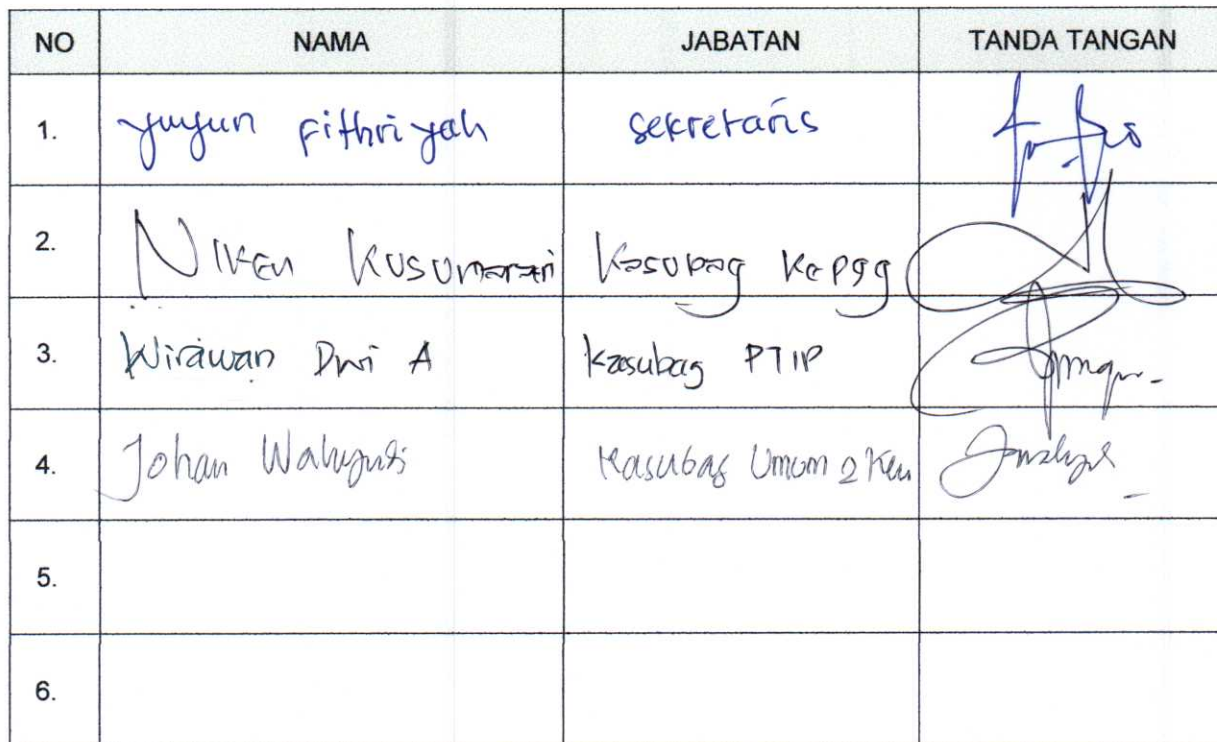 NO NAMA JABATAN TANDA TANGAN
1. Yuyun Fithriyah sekretaris
2. Niken Kusumarari Kasubag Kepgg
3. Wirawan Dwi A Kasubag PTIP
4. Johan Wahyudi Kasubag Umum & Keu
5.
6.